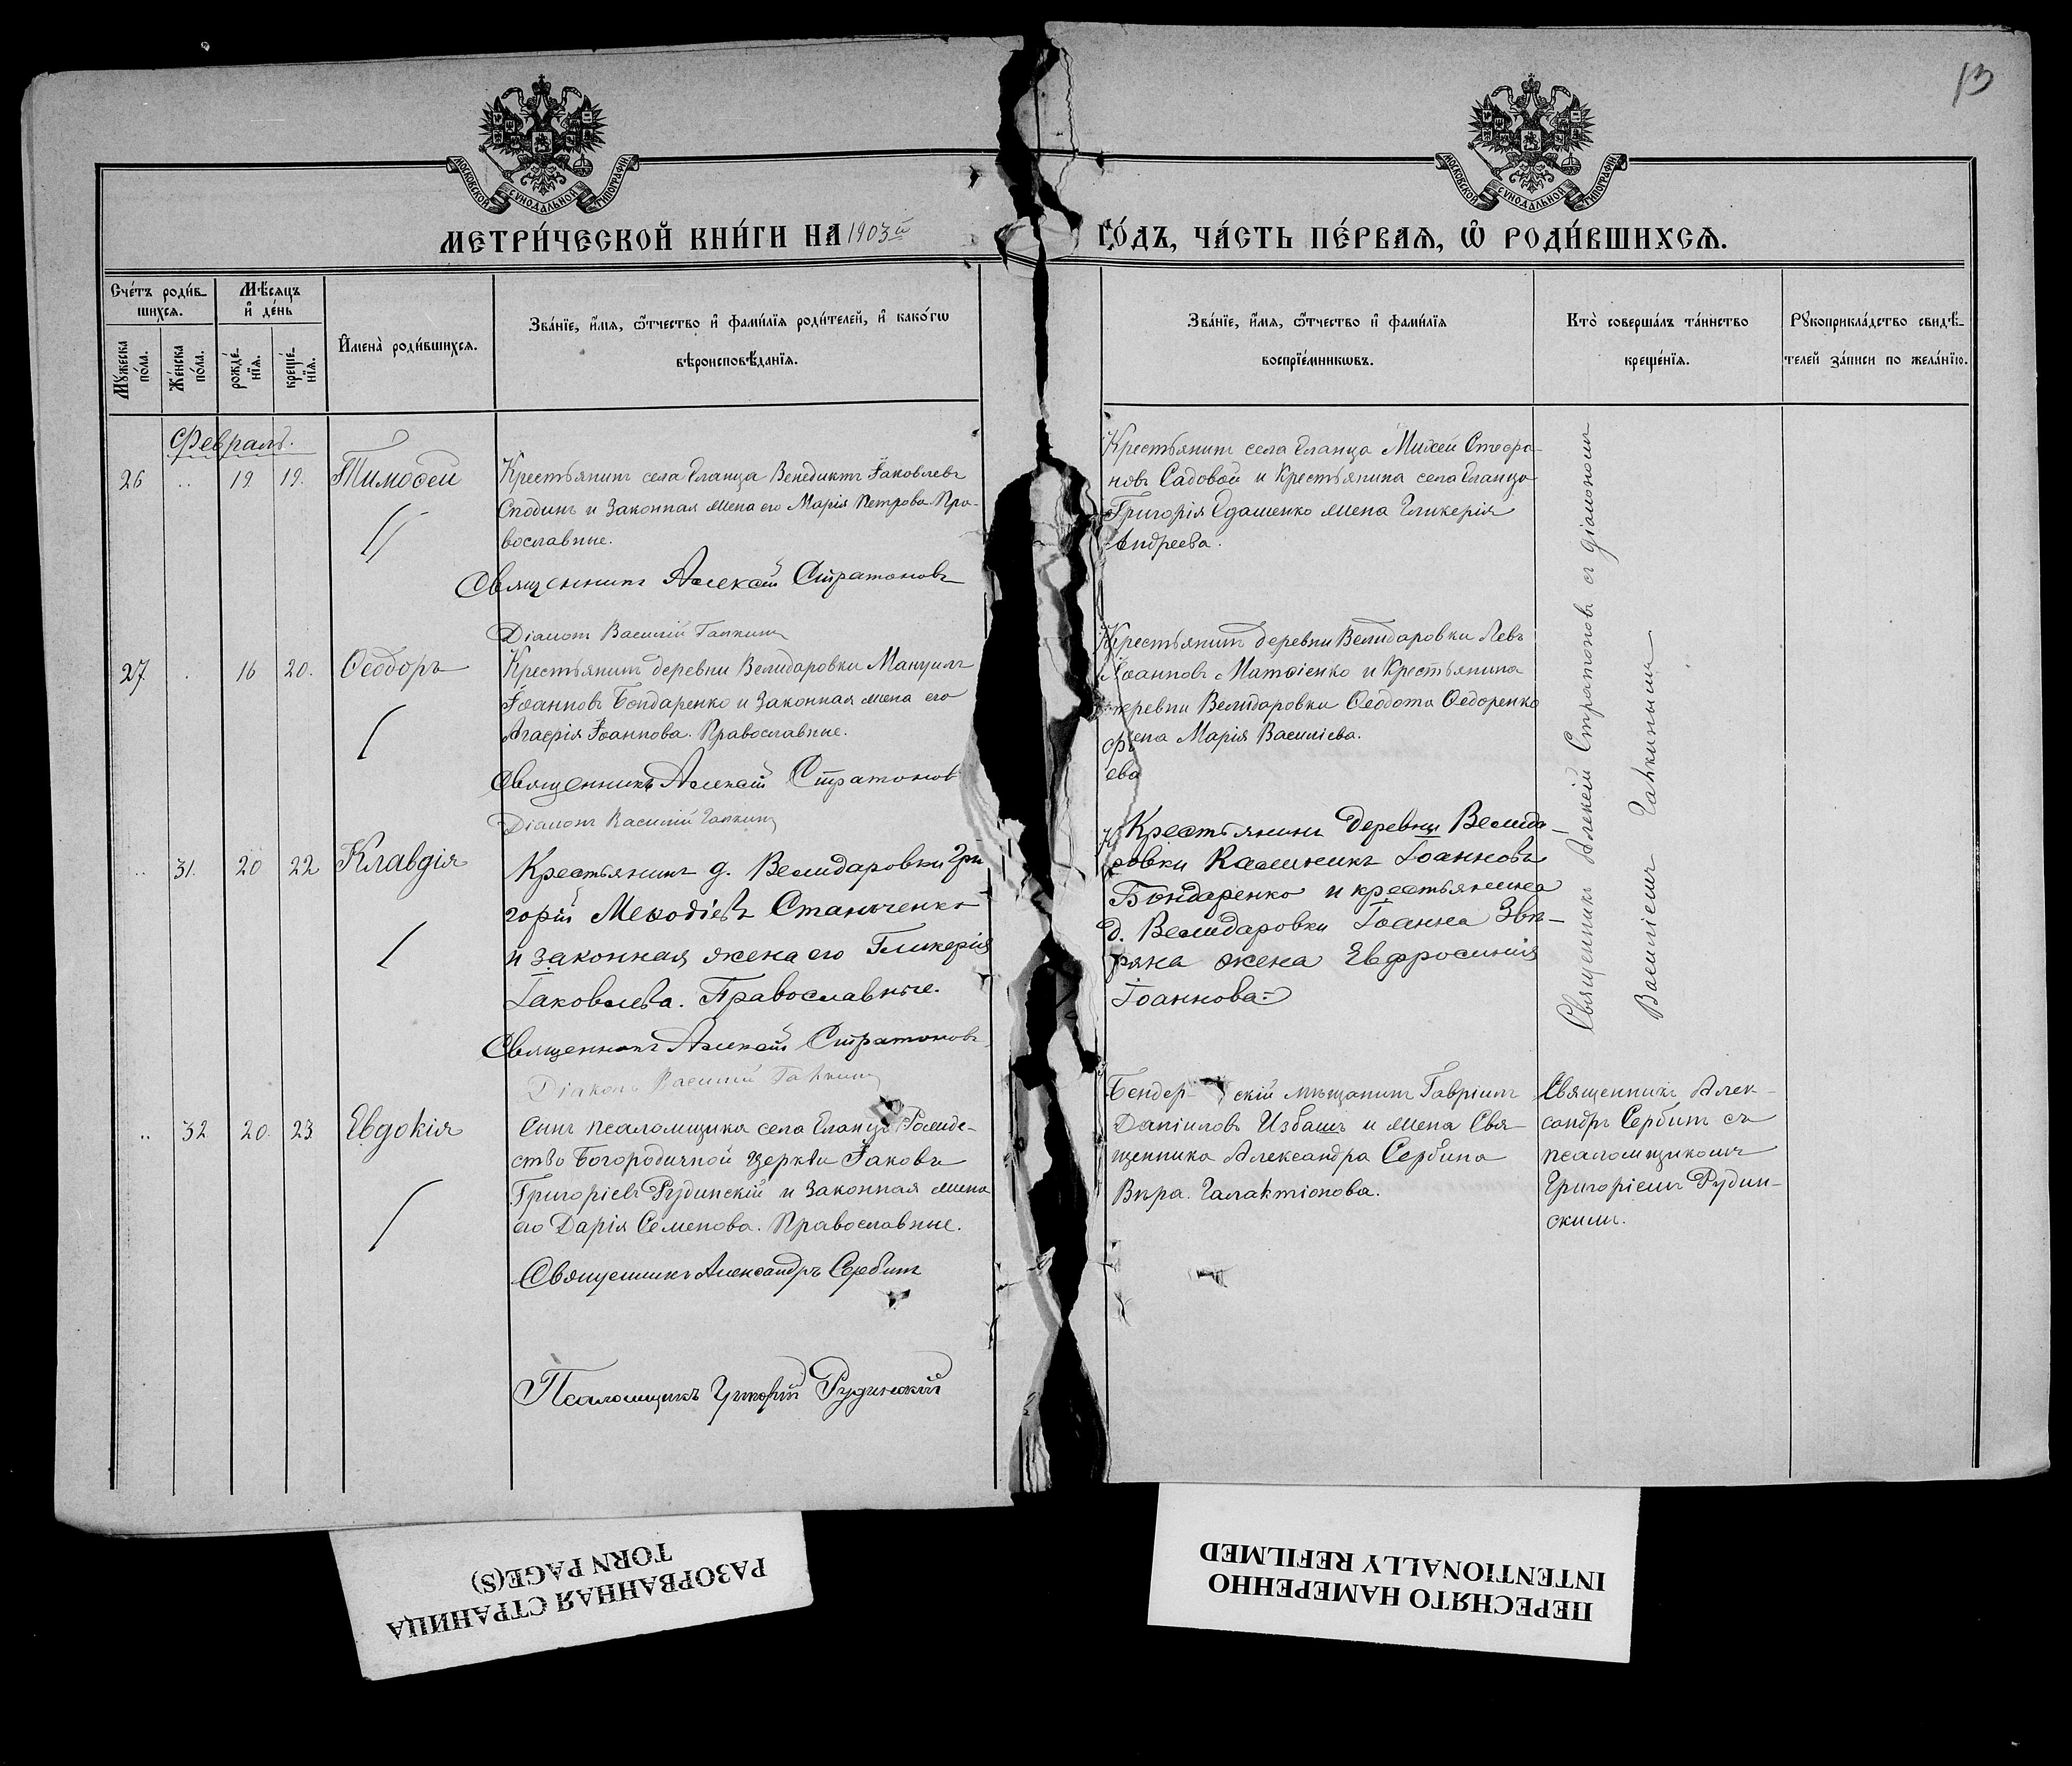 13
МОСКОВСКОЙ СѴНОДАЛЬНОЙ ТИПОГРАФІИ
МОСКОВСКОЙ СѴНОДАЛЬНОЙ ТИПОГРАФІИ
МЕТРИ́ЧЕСКОЙ КНИ́ГИ НА 1903й ГО́ДЪ, ЧА́СТЬ ПЕ́РВАѦ, Ѡ РОДИ́ВШИХСѦ.
Сче́тъ роди́в-
шихсѧ.
Мѣсѧцъ
и де́нь
Мꙋжеска
по́ла.
Же́нска
по́ла.
рожде́-
нїѧ.
креще́-
нїѧ.
Имена̀ роди́вшихсѧ.
Зва́нїе, и́мѧ, ѻ́тчество и фами́лїѧ роди́телей, и како́гѡ
вѣроисповѣ́данїѧ.
Зва́нїе, и́мѧ, ѻ́тчество и фами́лїѧ
воспрїе́мникѡвъ.
Кто̀ соверша́лъ та́инство
креще́нїѧ.
Рꙋкоприкла́дство свидѣ́-
телей за́писи по жела́нїю.
Февраль.
26 .. 19 19. Тимоѳей
Крестьянинъ села Еланца Венедиктъ Іаковлевъ
Сподинъ и законная жена его Марія Петрова. Пра-
вославные.
Священникъ Алексій Стратоновъ
Діаконъ Василій Галкинъ
Крестьянинъ села Еланца Михей Стефа-
новъ Садовой и Крестьянина села Еланца
Григорія Едашенко жена Гликерія
Андреева.
27 . 16 20. Ѳеодоръ
Крестьянинъ деревни Велидаровки Мануилъ
Іоанновъ Бондаренко и законная жена его
Агаѳія Іоаннова. Православные.
Священникъ Алексій Стратоновъ
Діаконъ Василій Галкинъ
Крестьянинъ деревни Велидаровки Левъ
Іоанновъ Матѳіенко и Крестьянина
деревни Велидаровки Ѳеодота Ѳедоренко
жена Марія Василіева.
ева
.. 31. 20 22 Клавдія
Крестьянинъ д. Велидаровки Гри
горій Меѳодіевъ Станченко
и законная жена его Гликерія
Іаковлева. Православные.
Священникъ Алексій Стратоновъ
Діаконъ Василій Галкинъ
Крестьянинъ деревни Велида-
ровки Калиникъ Іоанновъ
Бондаренко и крестьянина
д. Велидаровки Іоанна Зви-
ряка жена Евфросинія
Іоаннова.
Священникъ Алексій Стратоновъ съ діакономъ
Василіемъ Галкинымъ
.. 32 20. 23 Евдокія
Сынъ псаломщика села Еланца Рожде-
ство Богородичной церкви Іаковъ
Григорьевъ Рудинскій и законная жена
его Дарія Семенова. Православные.
Священникъ Александръ Сербинъ
Псаломщикъ Григорій Рудинскій
Бендер- скій мѣщанинъ Гавріилъ
Даніиловъ Избашъ и жена Свя-
щенника Александра Сербина
Вѣра Галактіонова.
Священникъ Алек-
сандръ Сербинъ съ
псаломщикомъ
Григоріемъ Рудин-
скимъ.
РАЗОРВАННАЯ СТРАНИЦА
TORN PAGE(S)
ПЕРЕСНЯТО НАМЕРЕННО
INTENTIONALLY REFILMED